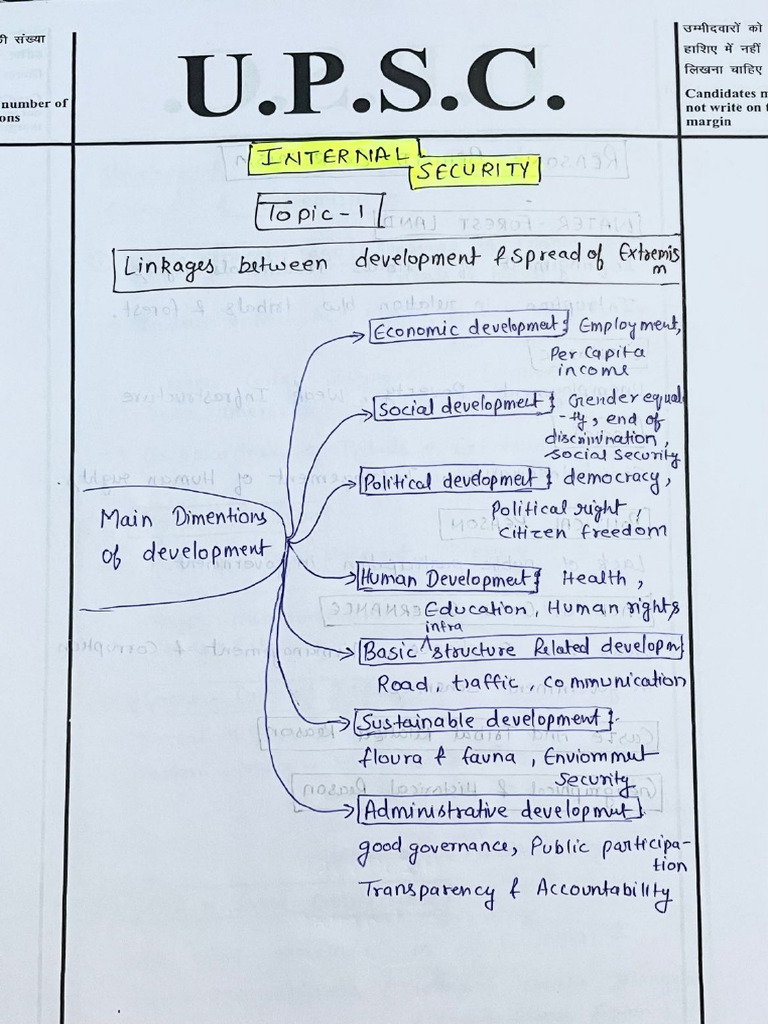 की संख्या
number of
ons
U.P.S.C.
उम्मीदवारों को
हाशिए में नहीं
लिखना चाहिए
Candidates m
not write on t
margin
INTERNAL
SECURITY
Topic-1
Linkages between development & spread of Extremis
m
Main Dimentions
of development
Economic development} Employment,
Per Capita
income
Social development} Gender equal
-ty, end of
discrimination,
social security
Political development} democracy,
Political right,
Citizen freedom
Human Development} Health,
Education, Human rights
infra
Basic ^structure Related developm
Road, traffic, communication
Sustainable development}
floura & fauna, Enviommut
Security
Administrative developmut}
good governance, Public participa-
tion
Transparency & Accountability